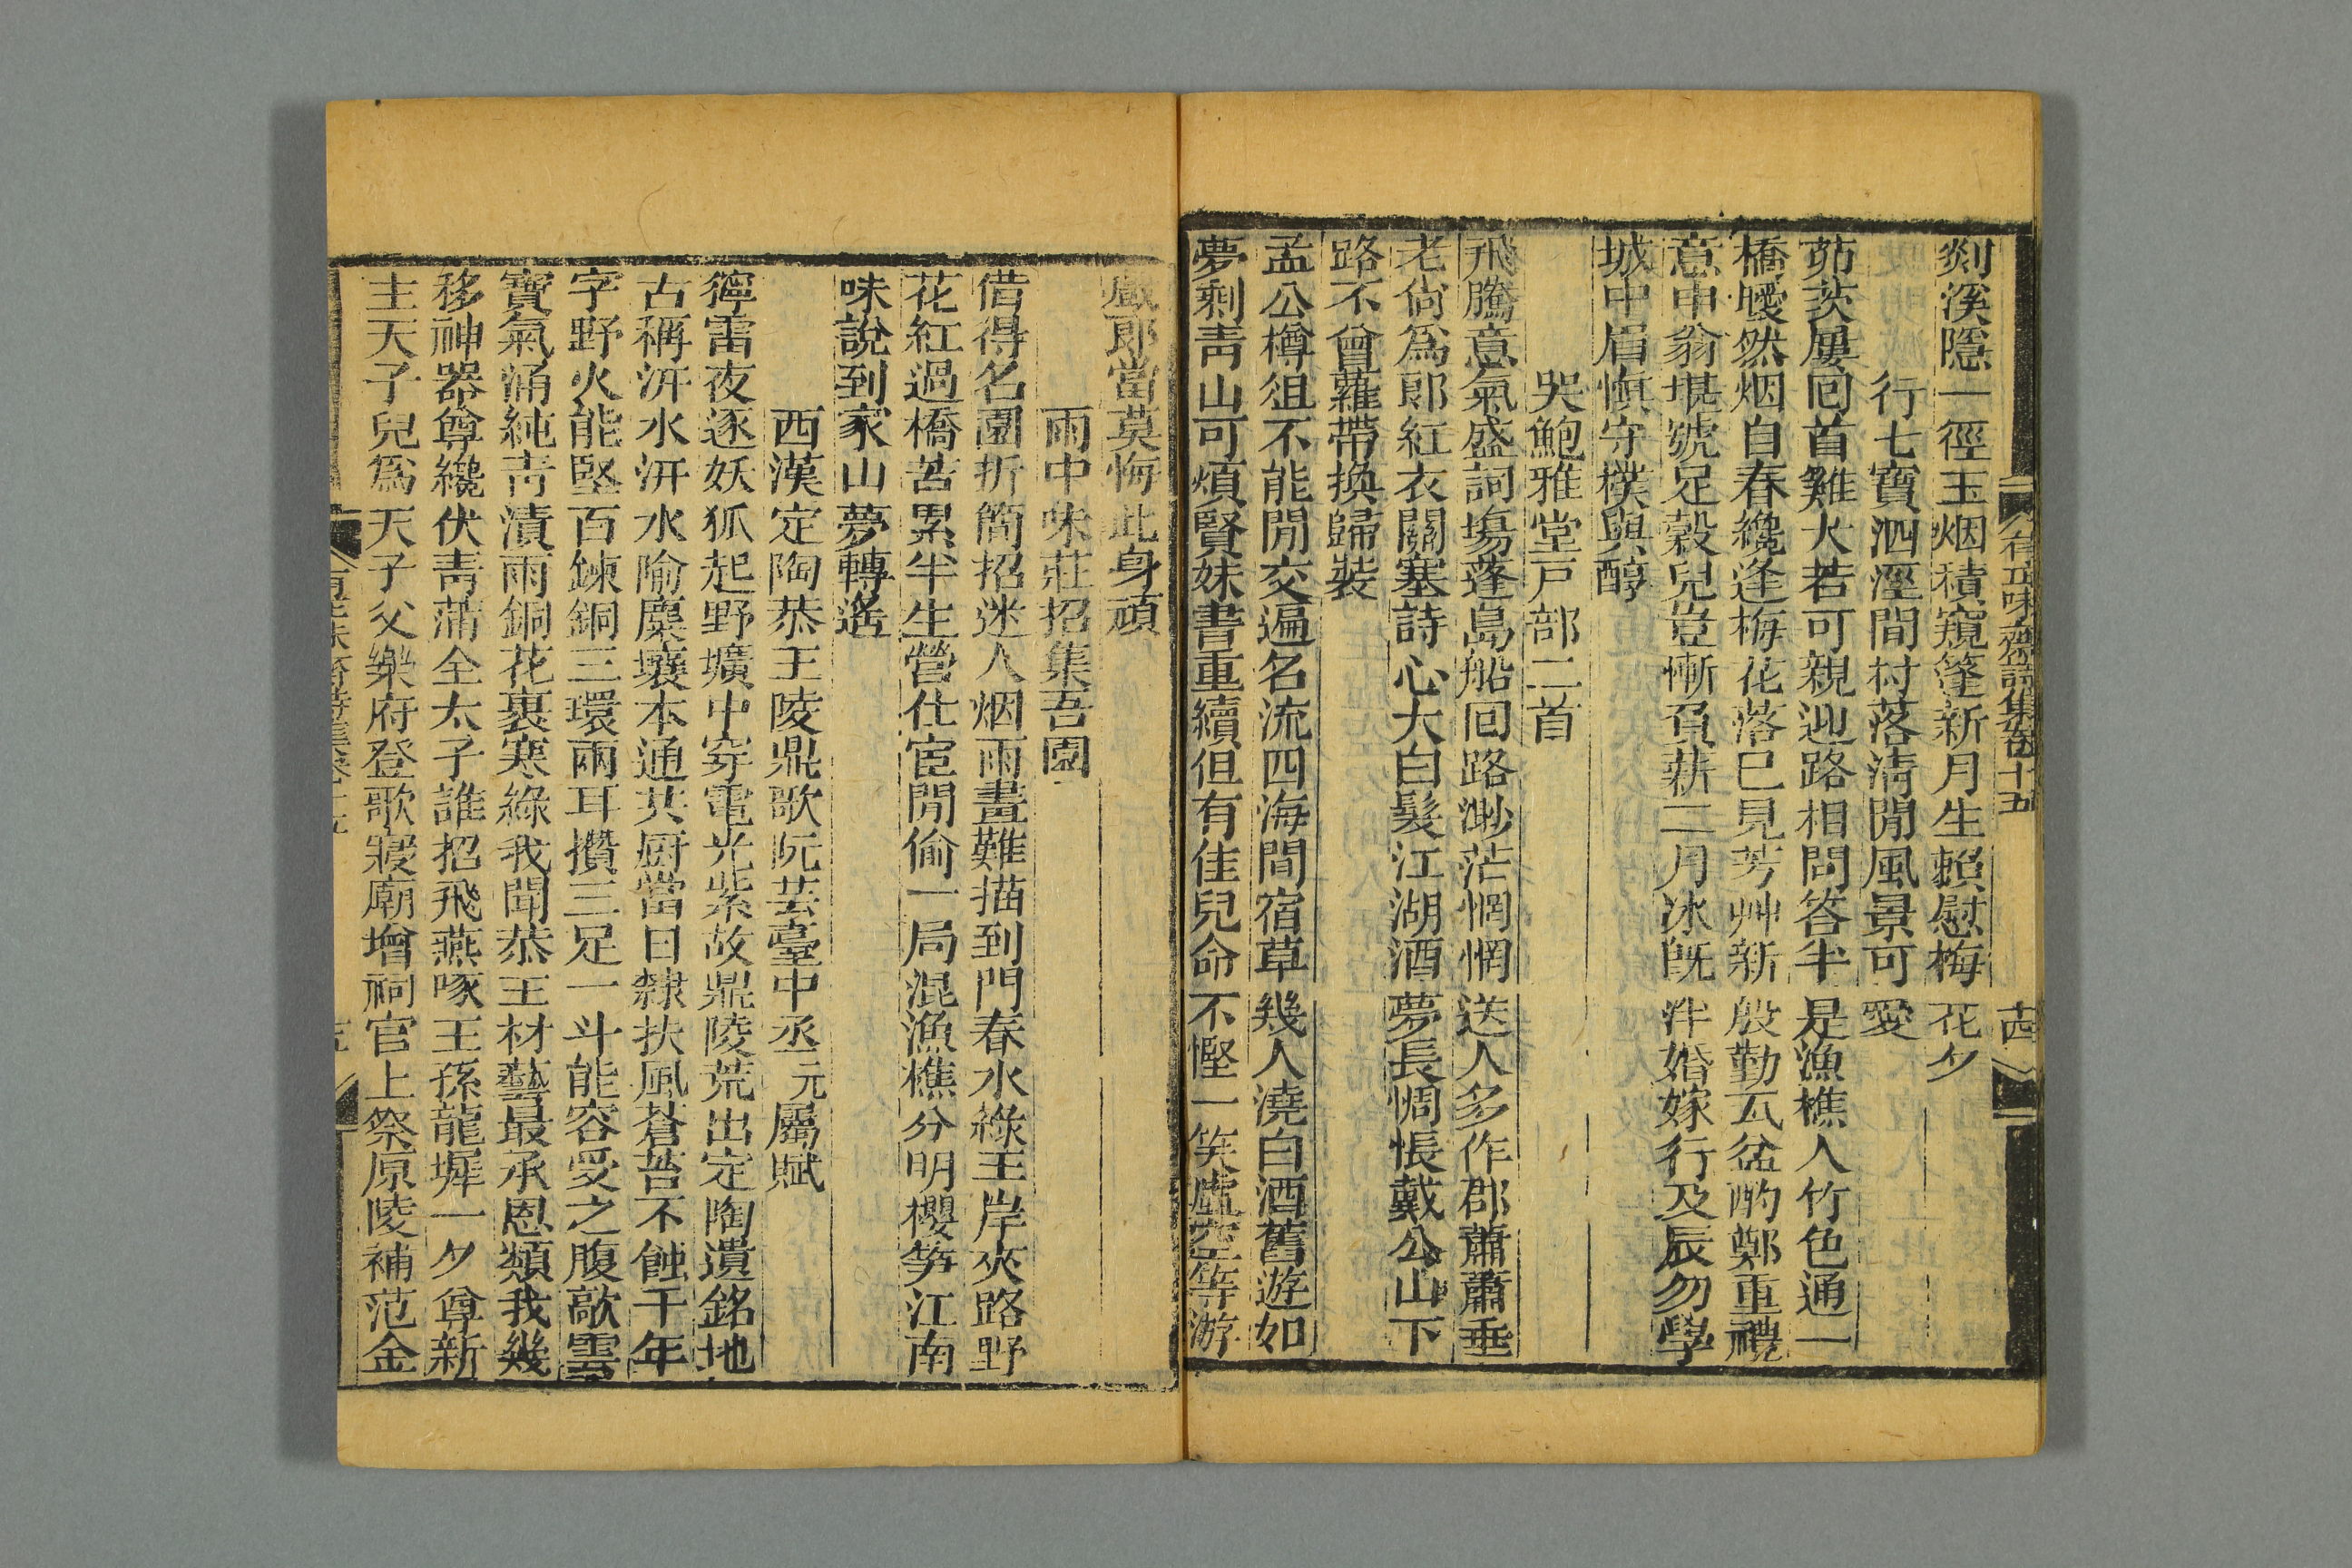 有正味齋詩集卷十五
十四
剡溪隱一徑玉烟積窺篷新月生賴慰梅花夕
行七寶泗涇間村落清閒風景可愛
茆茨屢回首雞犬若可親迎路相問答半是漁樵人竹色通一
橋曖然烟自春纔逢梅花落已見芳艸新殷勤瓦盆酌鄭重禮
意申翁堪號足穀兒豈慚負薪二月冰旣泮婚嫁行及辰勿學
城中眉愼守樸與醇
哭鮑雅堂戸部二首
飛騰意氣盛詞塲蓬島船回路渺茫惘惘送人多作郡蕭蕭垂
老尙爲郞紅衣關塞詩心大白髮江湖酒夢長惆悵戴公山下
路不曾蘿帶換歸裝
孟公樽俎不能閒交遍名流四海間宿草幾人澆白酒舊遊如
夢剩靑山可煩賢妹書重續但有佳兒命不慳一笑虛空等游
戲郞當莫悔此身頑
雨中味莊招集吾園
借得名園折簡招迷人烟雨畫難描到門春水綠王岸夾路野
花紅過橋苦累半生營仕宦閒偷一局混漁樵分明櫻笋江南
味說到家山夢轉遙
西漢定陶恭王陵鼎歌阮芸臺中丞元屬賦
獰雷夜逐妖狐起野壙中穿電光紫故鼎陵荒出定陶遺銘地
古稱汧水汧水隃麋壤本通共厨當日隸扶風蒼苔不蝕千年
字野火能堅百鍊銅三環兩耳攢三足一斗能容受之腹敲雲
寶氣涌純靑漬雨銅花裹寒綠我聞恭王材藝最承恩類我幾
移神器尊纔伏靑蒲全太子誰招飛燕啄王孫龍墀一夕尊新
主天子兒爲天子父樂府登歌寢廟增祠官上祭原陵補范金